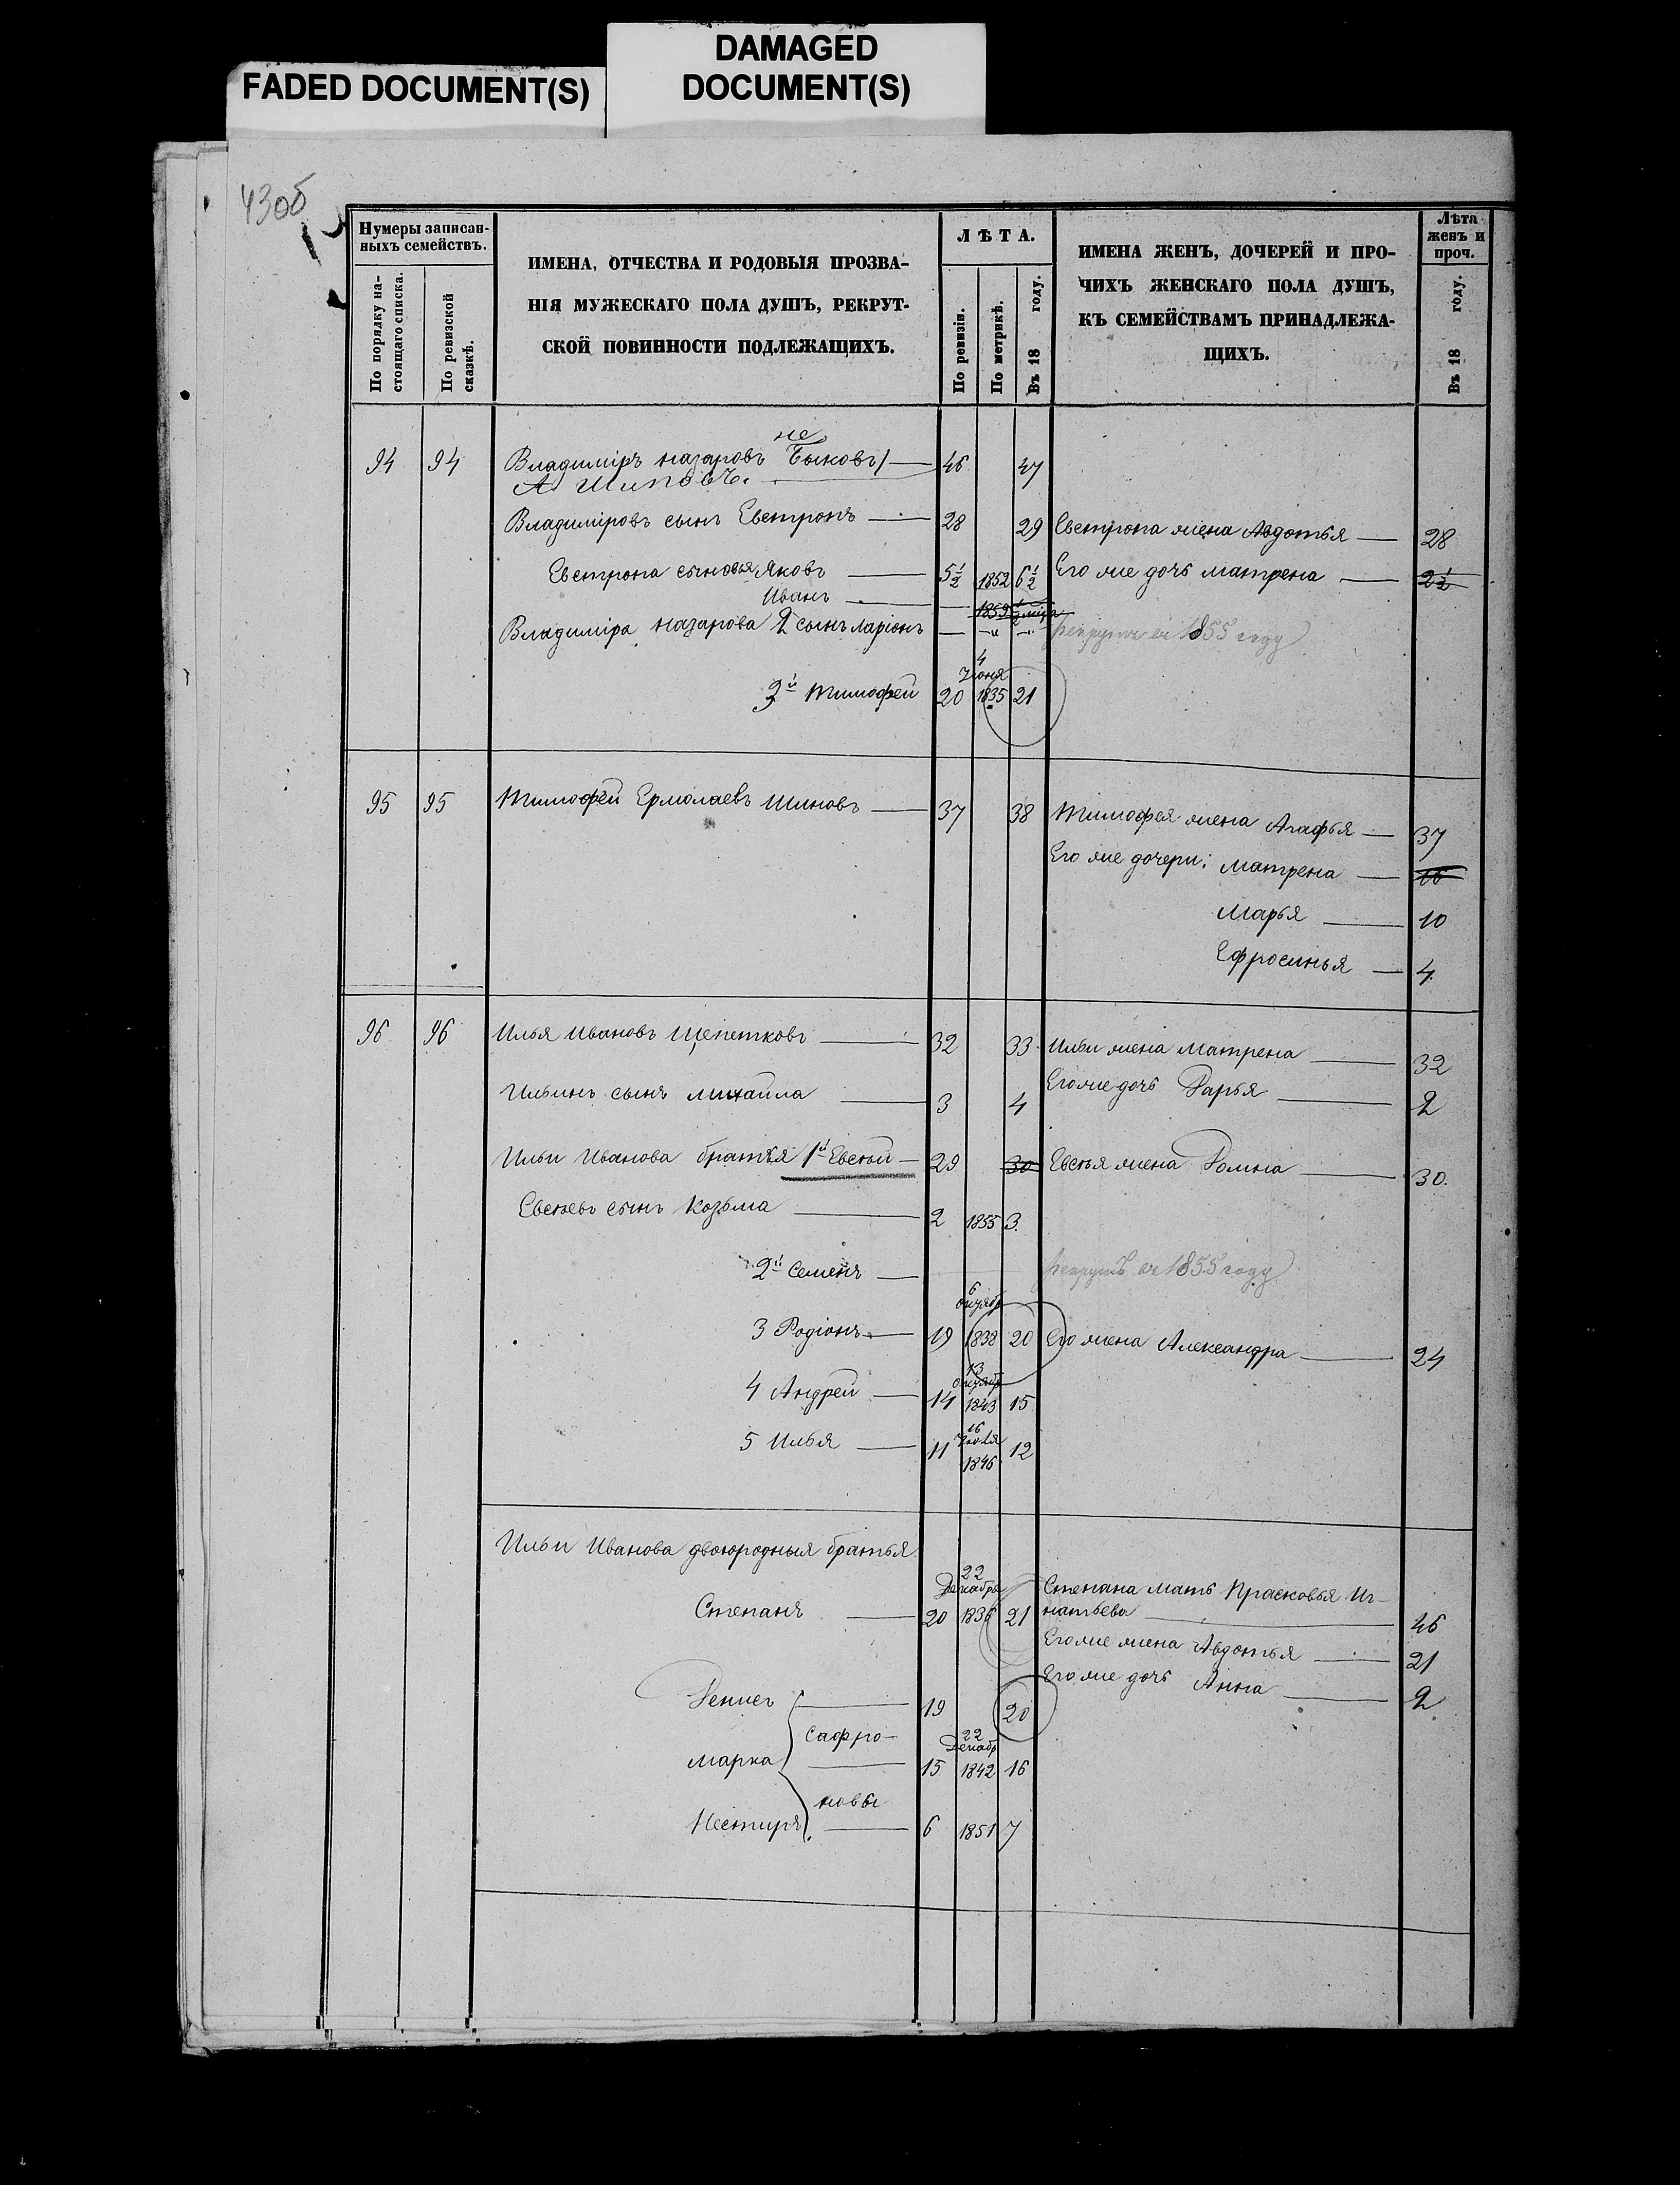 FADED DOCUMENT(S)
DAMAGED
DOCUMENT(S)
430б
Нумеры записан-
ныхъ семействъ.
По порядку на-
стоящаго списка.
По ревизской
сказкѣ.
ИМЕНА, ОТЧЕСТВА И РОДОВЫЯ ПРОЗВА-
НІЯ МУЖЕСКАГО ПОЛА ДУШЪ, РЕКРУТ-
СКОЙ ПОВИННОСТИ ПОДЛЕЖАЩИХЪ.
ЛѢТА.
По ревизіи.
По метрикѣ.
Въ 18 году.
ИМЕНА ЖЕНЪ, ДОЧЕРЕЙ И ПРО-
ЧИХЪ ЖЕНСКАГО ПОЛА ДУШЪ,
КЪ СЕМЕЙСТВАМЪ ПРИНАДЛЕЖА-
ЩИХЪ.
Лѣта
женъ и
проч.
Въ 18 году.
не
94 94 Владиміръ Назаровъ Быковъ 46 47
А Шиповъ.
Владиміровъ сынъ Евстропъ 28 29 Евстропа жена Авдотья 28
Евстропа сыновья Яковъ 5 1/2 1852 6 1/2 Его же дочь Матрена 2 1/2
Иванъ 1859 1/2
Владиміра Назарова 2 сынъ Ларіонъ рекрутъ въ 1855 году
4
Іюня
3й Тимофей 20 1835 21
95 95 Тимофей Ермолаевъ Шиповъ 37 38 Тимофея жена Агафья 37
Его же дочери: Матрена 16
Марья 10
Ефросинья 4.
96 96 Илья Ивановъ Щепетковъ 32 33 Ильи жена Матрена 32
Ильинъ сынъ Михаила 3 4 Его же дочь Дарья 2
Ильи Иванова братья 1й Евсѣй 29 30 Евсѣя жена Домна 30.
Евсѣевъ сынъ Козьма 2 1855 3.
2й Семенъ рекрутъ въ 1855 году
6
октября
3 Родіонъ 19 1838 20 Его жена Александра 24
13
октября
4 Андрей 14 1843 15
16
Іюля
5 Илья 11 1846 12
Ильи Иванова двоюродныя братья
22
Декабря
Степанъ 20 1836 21
Степана мать Прасковья Иг-
натьева 46
Его же жена Авдотья 21
Его же дочь Анна 2
Денисъ 19 20
Сафро-
22
Декабр
Марка 15 1842 16
новы
Нестиръ 6 1851 7